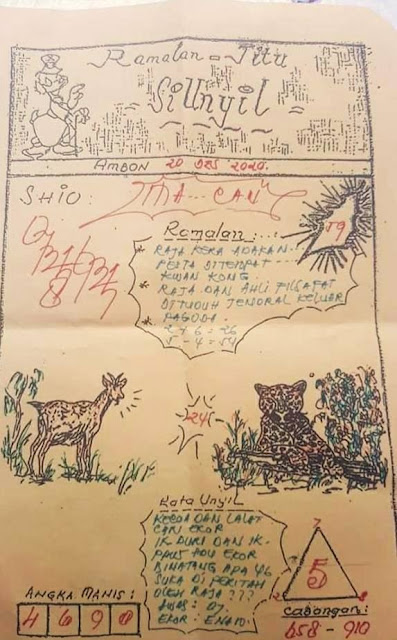 Ramalan = Jitu
Si Unyil
AMBON 20 DES 2020.
SHIO: MA-CAN
Ramalan:
59
* RAJA KERA ADAKAN
PESTA DITEMPAT
KWAN KONG.
* RAJA DAN AHLI FILSAFAT
DITUDUH JENDRAL KELUAR
PAGODA.
2 + 6 = 26
5 - 4 = 54
245
Kata Unyil
KECOA DAN LALAT
CARI EKOR
IK. DURI DAN IK.
PAUS ADU EKOR
BINATANG APA YG
SUKA DI PERITAH
OLEH RAJA ???
AWAS: 07.
EKOR: ENAM.
7
5
2 8
ANGKA MANIS:
4 6 9 0
Cabangan:
658 910